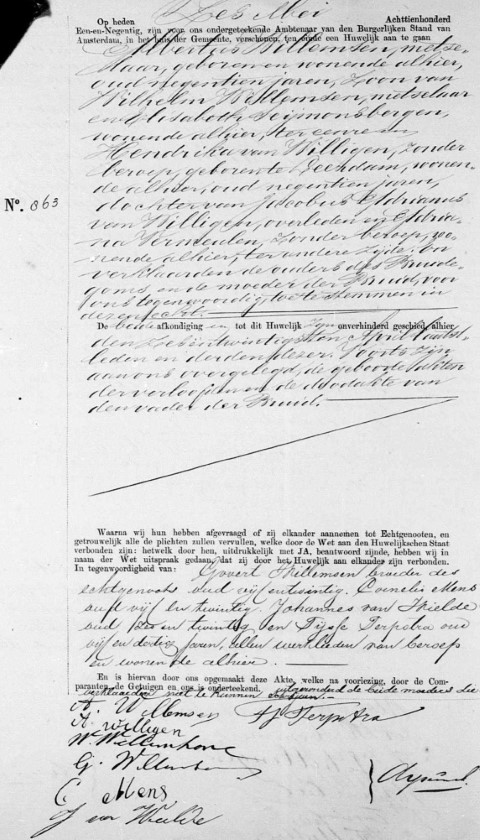 Op heden Zes Mei Achttienhonderd
Een-en-Negentig, zijn voor ons ondergeteekende Ambtenaar van den Burgerlijken Stand van
Amsterdam, in het huis der Gemeente, verschenen, ten einde een Huwelijk aan te gaan
Willemsen, metse-
laar, geboren en wonende alhier,
oud negentien jaren, Zoon van
Wilhelm Willemsen, metselaar
en Elisabeth Seijmonsbergen,
wonende alhier, ter eenre en
Hendrika van Willigen, Zonder
beroep, geboren te Leerdam, wonen-
de alhier, oud negentien jaren,
dochter van Jacobus Adrianus
van Willigen, overleden en Adria-
na Vermeulen, Zonder beroep, wo-
nende alhier, ter andere Zijde. En
verklaarden de ouders des Bruide-
goms, en de moeder der Bruid, voor
ons tegenwoordig, toe te stemmen in
deze echt.
No. 863
De beide afkondigingen tot dit Huwelijk zijn onverhinderd geschied, alhier
den zes en twintigsten April laatst-
leden en derden dezer. Voorts zijn
aan ons overgelegd, de geboorte akten
der verloofden en de doodakte van
den vader der Bruid.
Waarna wij hun hebben afgevraagd of zij elkander aannemen tot Echtgenooten, en
getrouwelijk alle de plichten zullen vervullen, welke door de Wet aan den Huwelijkschen Staat
verbonden zijn: hetwelk door hen, uitdrukkelijk met JA, beantwoord zijnde, hebben wij in
naam der Wet uitspraak gedaan, dat zij door het Huwelijk aan elkander zijn verbonden.
In tegenwoordigheid van: Govert Willemsen broeder des
echtgenoots oud vijf en twintig. Cornelis Mens
oud vijf en twintig Johannes van Weelde
oud zes en twintig en Tijsse Terpstra oud
vijf en dertig Jaren, allen werklieden van beroep
en wonende alhier.
En is hiervan door ons opgemaakt deze Akte, welke na voorlezing, door de Com-
paranten, de Getuigen en ons is onderteekend. uitgezonderd de beide moeders die
verklaarden niet te kunnen
A. Willemsen
T. Terpstra
H. willigen
W. Willemsen
G. Willemsen
C Mens
J van Weelde